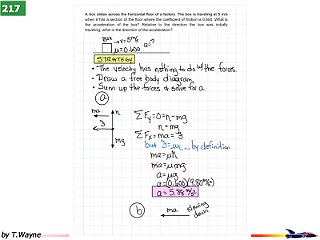 217
A box slides across the horizontal floor of a factory. The box is traveling at 5 m/s
when it hits a section of the floor where the coefficient of friction is 0.600. What is
the acceleration of the box? Relative to the direction the box was initially
traveling, what is the direction of the acceleration?
BOX → v=5 m/s a=?
μ=0.600
STRATEGY
• The velocity has nothing to do w/ the forces.
• Draw a free body diagram
• Sum up the forces & solve for a
a
ma n
mg
ΣFy=0=n-mg
n=mg
ΣFx=ma=
but
by definition
ma=μn
ma=μmg
a=μg
a=(0.600)(9.80 m/s²)
a=5.88 m/s²
b
ma slowing
down
by T.Wayne